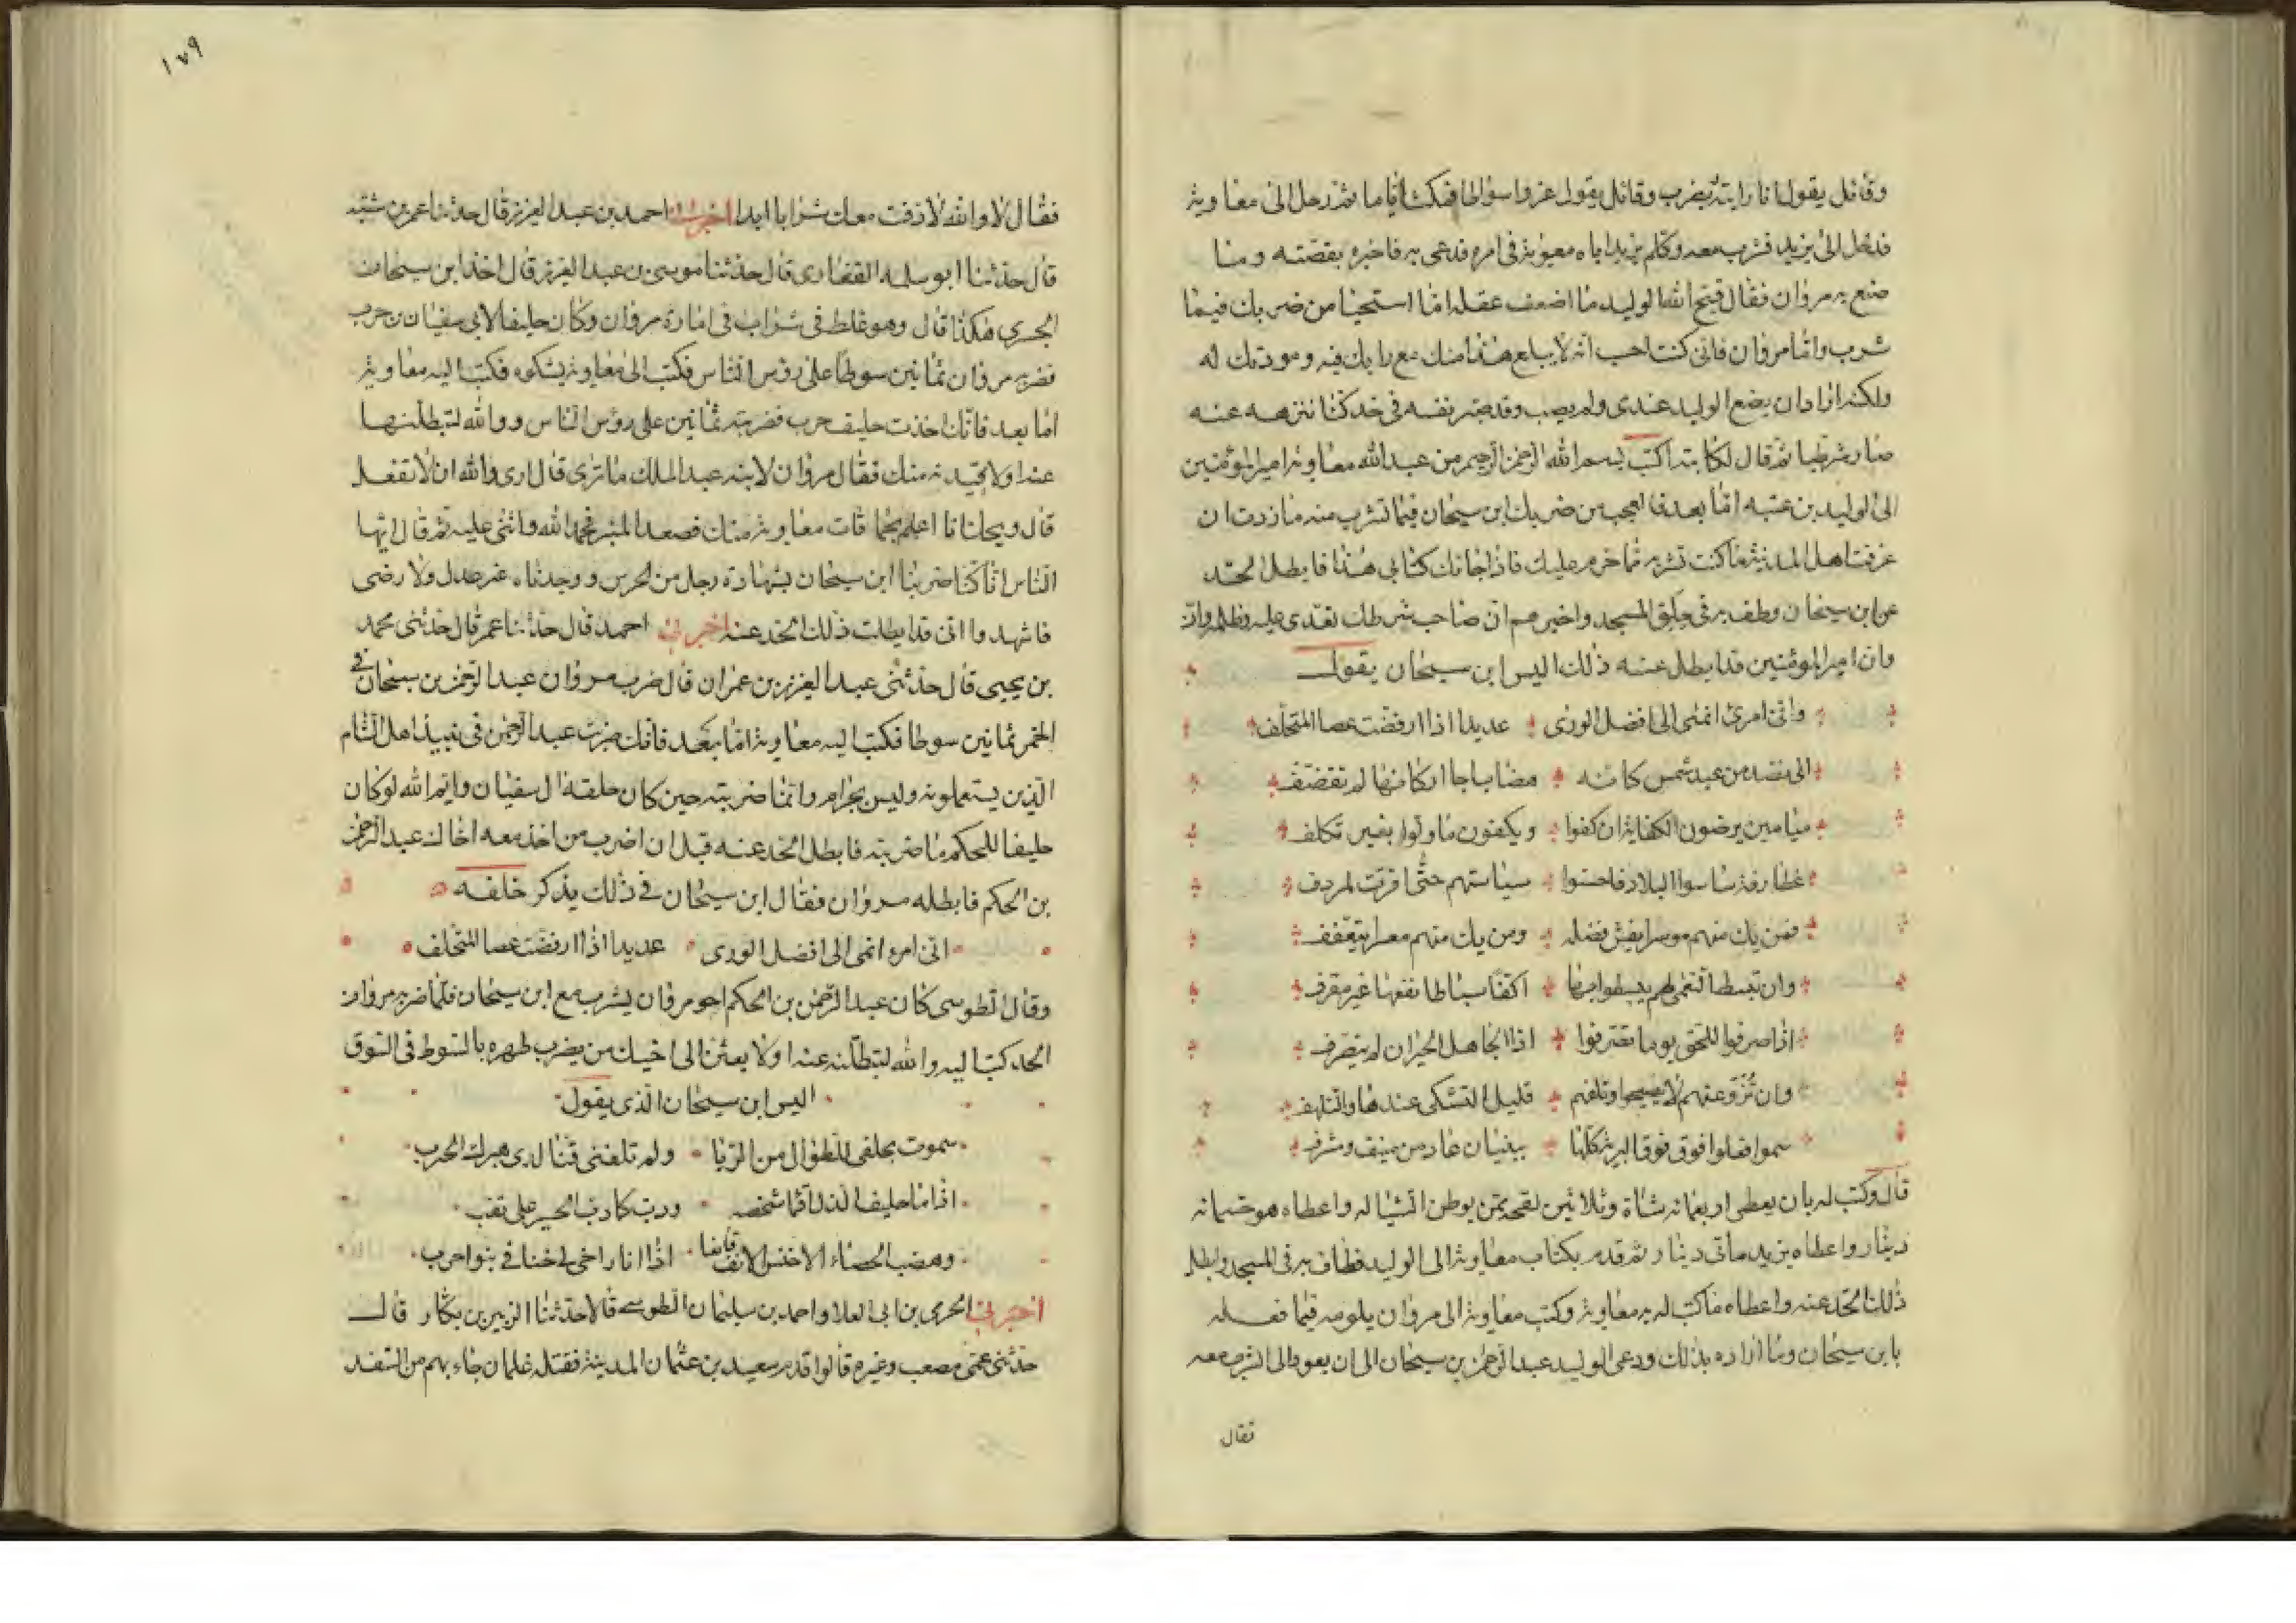 وقائل يقول انا رايته يضرب وقائل يقول عزوا سواطا فمكث اياما ثم رحل الى معاوية
فدخل الى يزيد فشرب معه وكلم يزيد اباه معوية في امره فدعى به فاخبره بقصته وما
صنع به مروان فقال قبح الله الوليد ما اضعف عقله اما استحيا من ضربك فيما
شرب واما مروان فاني كنت احب انه لا يبلغ هذا منك مع رايك فيه ومودتك له
ولكنه اراد ان يضع الوليد عندي ولم يصب وقد صير نفسه في حد كنا ننزهه عنه
صار شرطيا ثم قال لكاتبه اكتب بسم الله الرحمن الرحيم من عبد الله معاوية امير المؤمنين
الى الوليد بن عتبه اما بعد فالعجب من ضربك ابن سيحان فيما تشرب منه ما زدت ان
عرفت اهل المدينة ما كنت تشربه مما حرم عليك فاذا جاءك كتابي هذا فابطل الحد
عن ابن سيحان وطف به في حلق المسجد واخبرهم ان صاحب شرطك تعدى عليه وظلمه وان
وان امير المؤمنين قد ابطل عنه ذلك اليس ابن سيحان يقول
واني امرئ انمى الى افضل الورى عديدا اذا ارفضت عصا المتحلف
الى نضد من عبد شمس كانه هضاب اجا اركانها لم تقضف
ميامين يرضون الكفاية ان كفوا ويكفون ما ولوا بغير تكلف
غطارفة ساسوا البلاد فاحسنوا سياستهم حتى اقرت لمردف
فمن يك منهم موسرا يفش فضله ومن يك منهم معسرا يتعفف
وان تبسط النعمى لهم يبسطوا بها اكفا سباطا نفعها غير مقرف
اذا صرفوا للحق يوما تصرفوا اذا الجاهل الحيران لم يتصرف
وان تزو عنهم لا يضجوا وتلفهم قليل التشكي عندها والتلهف
سموا فعلوا فوق فوق البرية كلها ببنيان عاد من منيف ومشرف
قال وكتب له بان يعطى اربعمائة شاة وثلاثين لقحة ممن يوطن السيالة واعطاه هو خمسمائة
دينار واعطاه يزيد ماتي دينار ثم قدم بكتاب معاوية الى الوليد فطاف به في المسجد وابطل
ذلك الحد عنه واعطاه ما كتب له به معاوية وكتب معاوية الى مروان يلومه فيما فعله
بابن سيحان وما اراده بذلك ودعى الوليد عبد الرحمن بن سيحان الى ان يعود الى الشرب معه
فقال
١٧٩
فقال لا والله لا ذقت معك شرابا ابدا اخبرنا احمد بن عبد العزيز قال حدثنا عمر بن شبه
قال حدثنا ابو سلمه الغفاري قال حدثنا موسى بن عبد العزيز قال اخذ ابن سيحان
الجسري هكذا قال وهو غلط في شراب في امارة مروان وكان حليفا لابي سفيان بن حرب
فضربه مروان ثمانين سوطا على رؤس الناس فكتب الى معاوية يشكوه فكتب اليه معاوية
اما بعد فانك اخذت حليف حرب فضربته ثمانين على رؤس الناس ووالله لتبطلنها
عنه او لاقيدنه منك فقال مروان لابنه عبد الملك ما ترى قال ارى والله ان لا تفعل
قال ويحك انا اعلم بمعاوية منك فصعد المنبر فحمد الله واثنى عليه ثم قال ايها
الناس انا كنا ضربنا ابن سيحان بشهادة رجل من الحرس ووجدناه غير عدل ولا رضى
فاشهدوا اني قد ابطلت ذلك الحد عنه اخبرني احمد قال حدثنا عمر قال حدثني محمد
بن يحيى قال حدثني عبد العزيز بن عمران قال ضرب مروان عبد الرحمن بن سيحان في
الخمر ثمانين سوطا فكتب اليه معاوية اما بعد فانك ضربت عبد الرحمن في نبيذ اهل الشام
الذين يستعملونه وليس بحرام وانما ضربته حين كان حلفه ال سفيان وايم الله لو كان
حليفا للحكم ما ضربته فابطل الحد عنه قبل ان اضرب من اخذ معه اخاك عبد الرحمن
بن الحكم فابطله مروان فقال ابن سيحان في ذلك يذكر حلفه
اني امرء انمى الى افضل الورى عديدا اذا ارفضت عصا المتخلف
وقال الطوسي كان عبد الرحمن بن الحكم اخو مروان يشرب مع ابن سيحان فلما ضربه مروان
الحد كتب اليه والله لتبطلنه عنه او لابعثن الى اخيك من يضرب ظهره بالسوط في السوق
اليس ابن سيحان الذي يقول
سموت بحلفي للطوال من الربا ولم تلفني قنا لدى مبرك الجرب
اذا ما حليف الذل اقما شخصه ودب كما دب الحسير على نقب
وهصب الحصاء الاخنس الانف قانعا اذا انا راخى لي خناقي بنو حرب
اخبرني الحرمي بن ابي العلا واحمد بن سليمان الطوسي قالا حدثنا الزبير بن بكار قال
حدثني عمي مصعب وغيره قالوا قدم سعيد بن عثمان المدينة فقتله غلمان جاء بهم من السغد